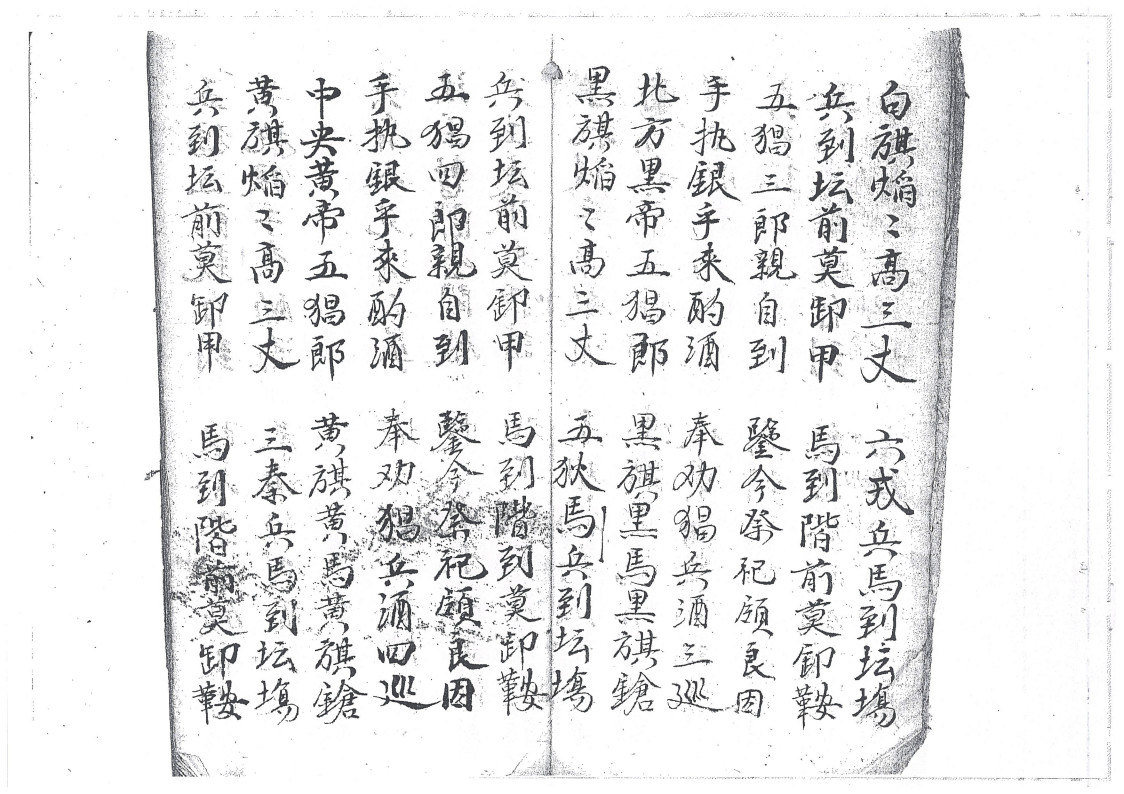 白旗焰〻高三丈　六戎兵馬到坛塲
兵到坛前莫卸甲　馬到階前莫卸鞍
五猖三郎親自到　鑒今祭祀願良因
手执銀乎来酌酒　奉劝猖兵酒三巡
北方黒帝五猖郎　黒旗黒馬黒旗鎗
黒旗焰〻高三丈　五狄馬兵到坛塲
兵到坛前莫卸甲　馬到階到莫卸鞍
五猖四郎親自到　鑒今祭祀願良因
手执銀乎来酌酒　奉劝猖兵酒四巡
中央黄帝五猖郎　黄旗黄馬黄旗鎗
黄旗焰〻高三丈　三秦兵馬到坛塲
兵到坛前莫卸甲　馬到階前莫卸鞍